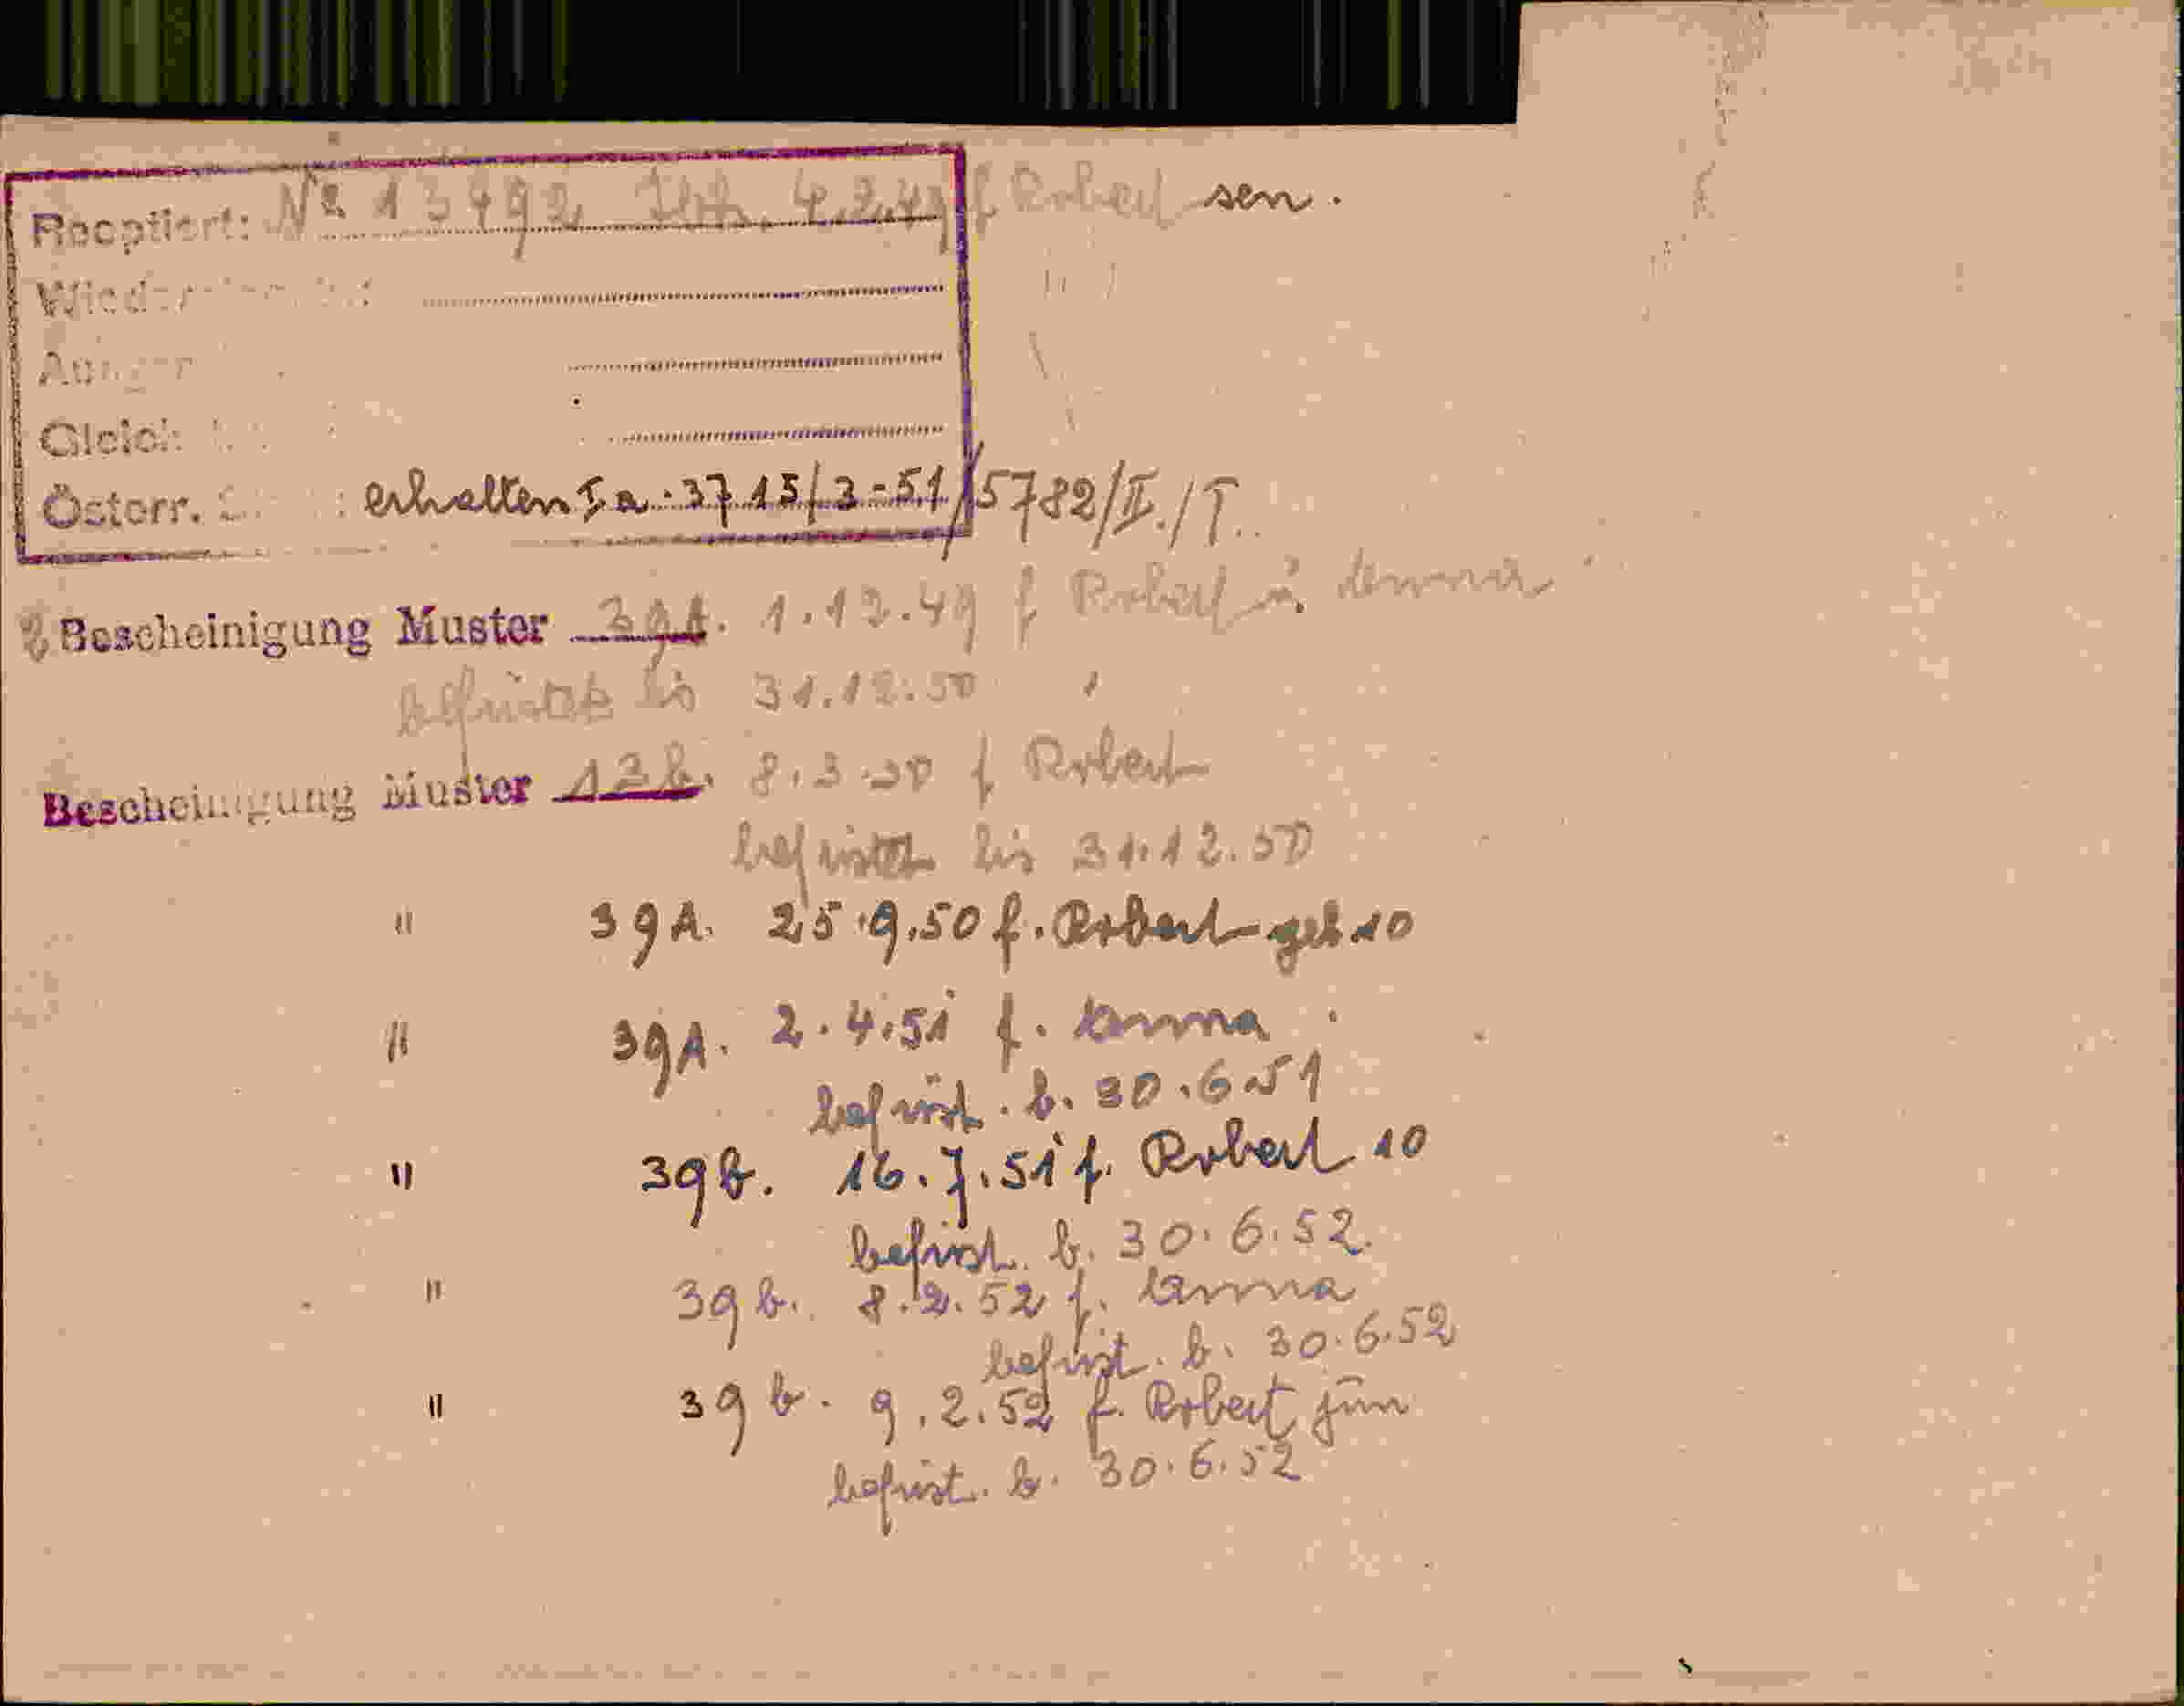 Reoptiert: No 13492 4.2.49 f Robert sen.
Österr. erhalten I a. 3715/3-51/5782/II./T.
2 Bescheinigung Muster 39A. 1.12.49 f Robert u. Anna
befristet bis 31.12.50
Bescheinigung Muster 13b. 8.3.50 f Robert
befristet bis 31.12.50
" 39A. 25.9.50 f. Robert geb 10
" 39A. 2.4.51 f. Anna
befrist. b. 30.6.51
" 39b. 16.7.51 f. Robert 10
befrist. b. 30.6.52.
" 39b. 8.2.52 f. Anna
befrist. b. 30.6.52
" 39b. 9.2.52 f. Robert jun
befrist. b. 30.6.52